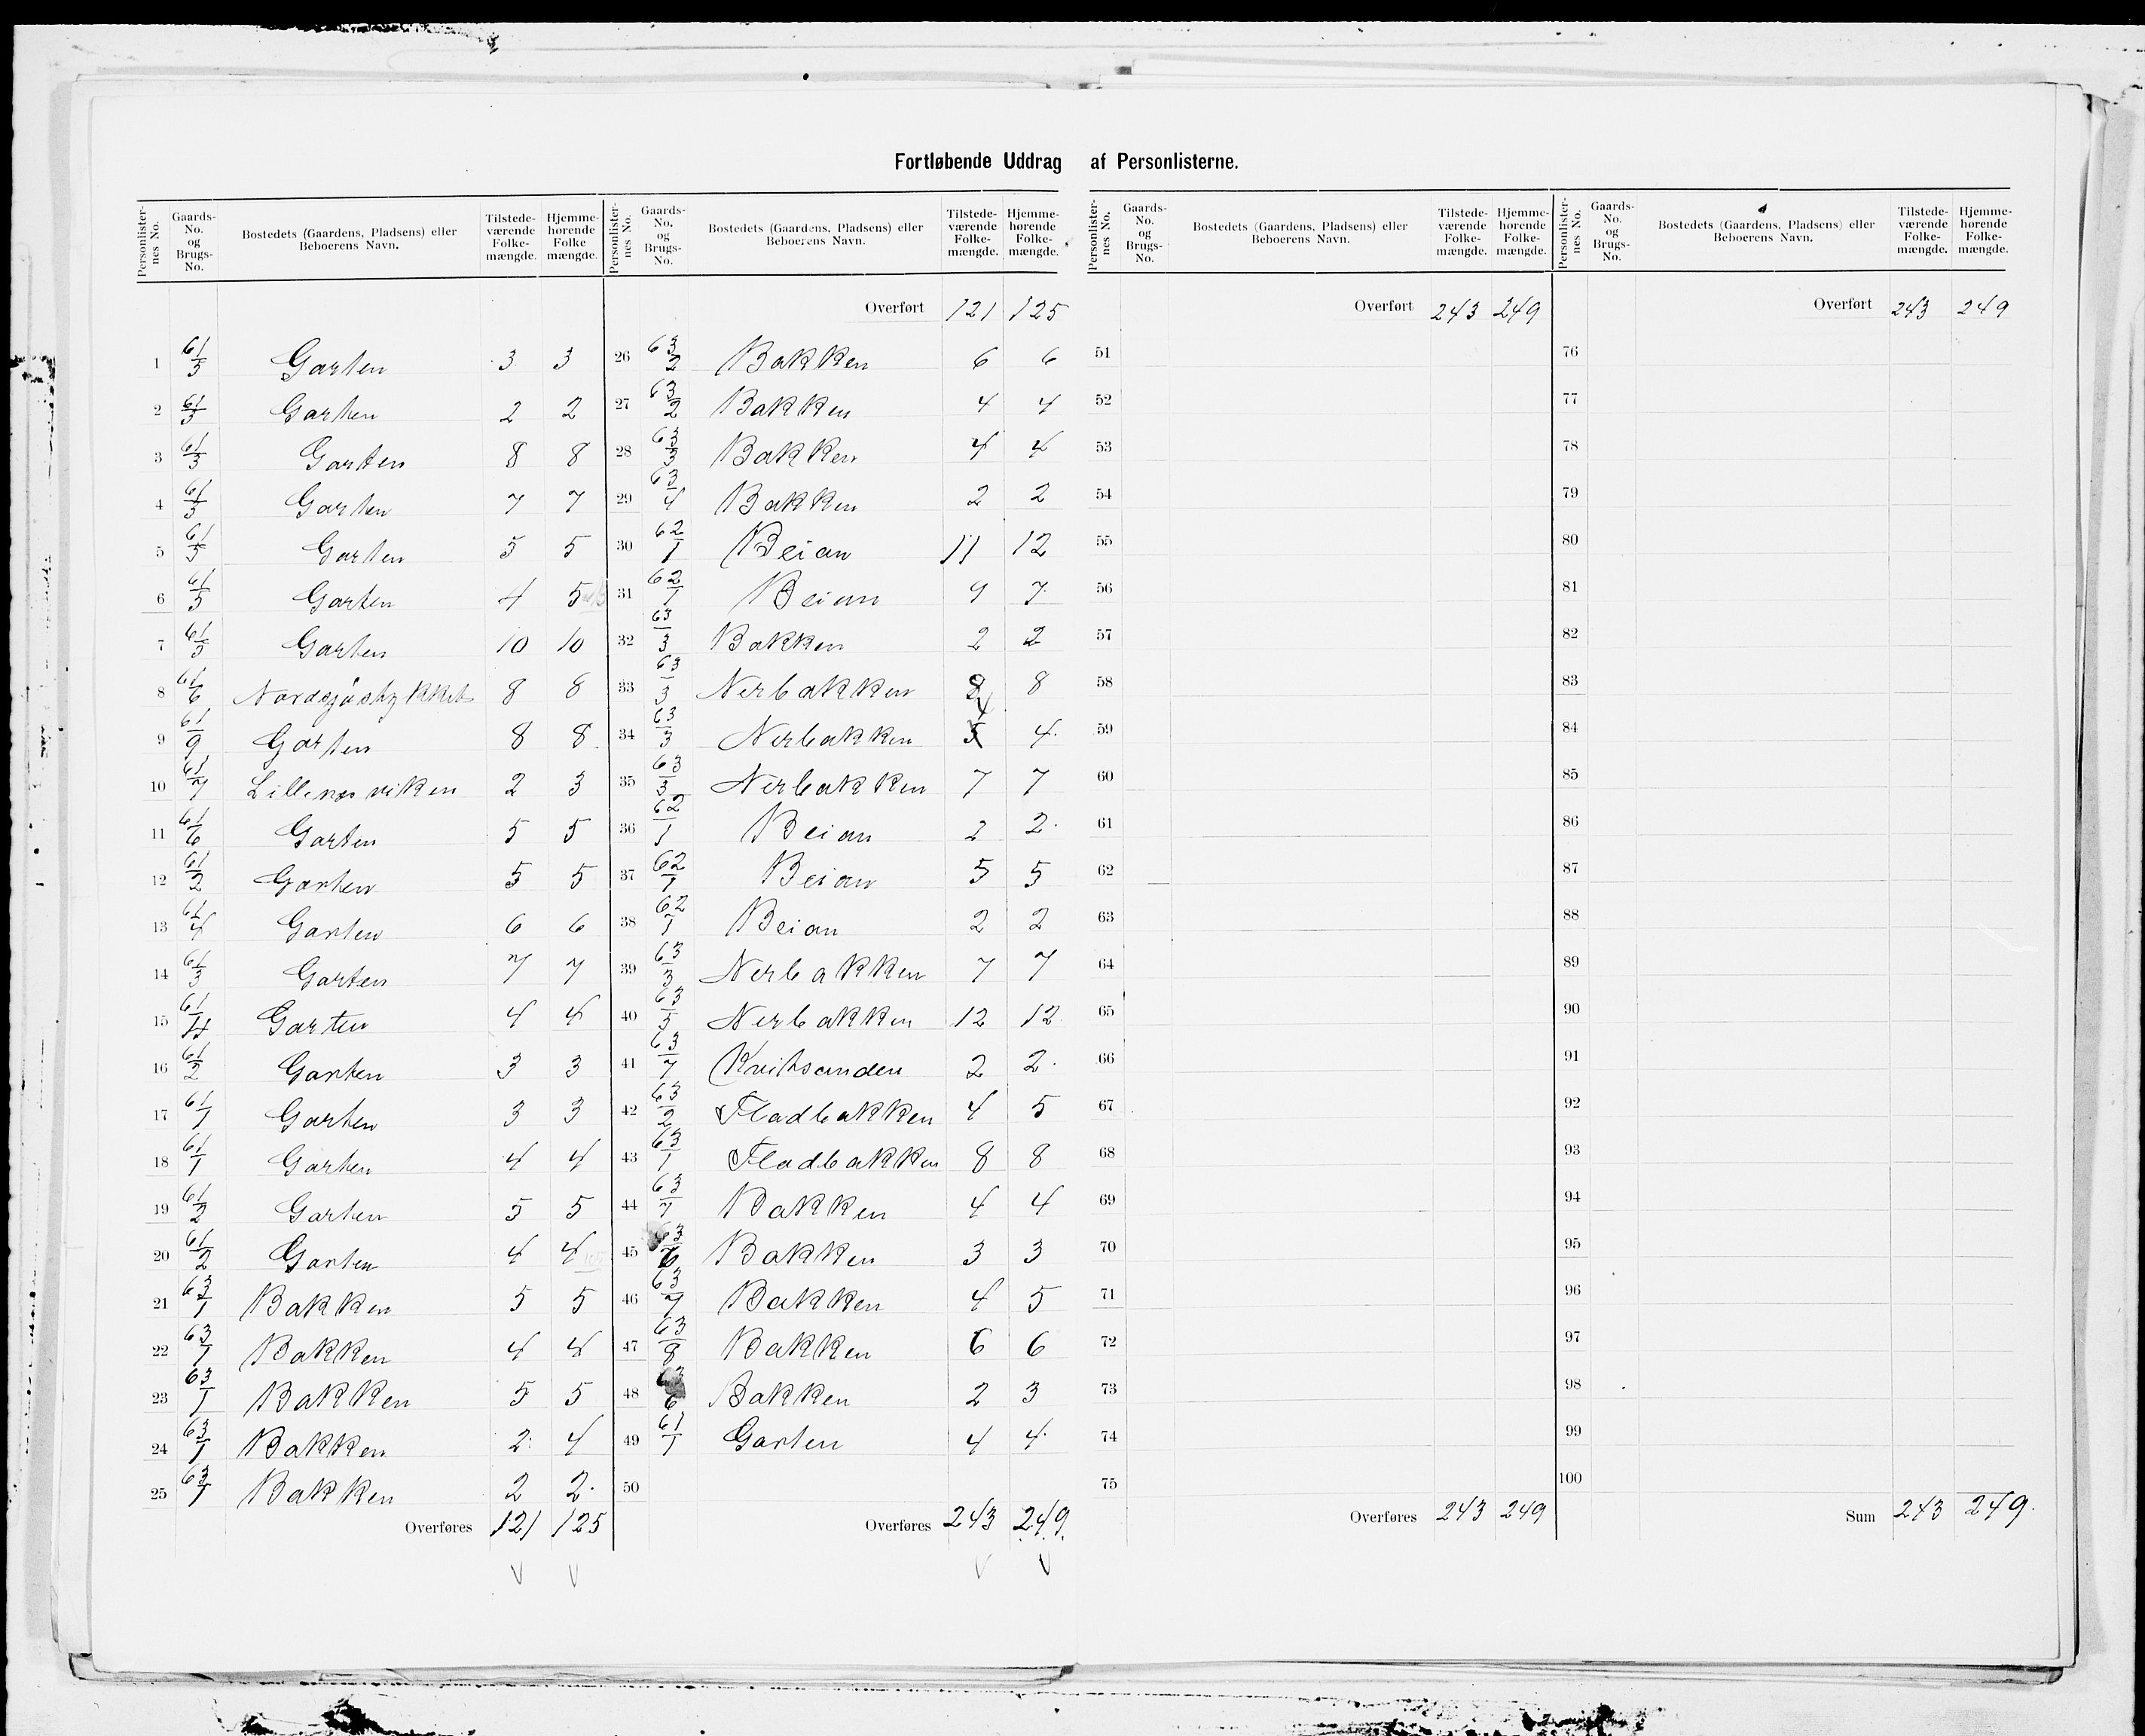 Fortløbende Uddrag af Personlisterne.
Personlister-nes No. | Gaards-No. og Brugs-No. | Bostedets (Gaardens, Pladsens) eller Beboerens Navn. | Tilstede-værende Folke-mængde. | Hjemme-hørende Folke mængde.
1 | 61/3 | Garten | 3 | 3
2 | 61/3 | Garten | 2 | 2
3 | 61/3 | Garten | 8 | 8
4 | 61/3 | Garten | 7 | 7
5 | 61/5 | Garten | 5 | 5
6 | 61/5 | Garten | 4 | 5
7 | 61/5 | Garten | 10 | 10
8 | 61/6 | | 8 | 8
9 | 61/9 | Garten | 8 | 8
10 | 61/7 | | 2 | 3
11 | 61/6 | Garten | 5 | 5
12 | 61/2 | Garten | 5 | 5
13 | 61/4 | Garten | 6 | 6
14 | 61/3 | Garten | 7 | 7
15 | 61/4 | Garten | 4 | 4
16 | 61/2 | Garten | 3 | 3
17 | 61/1 | Garten | 3 | 3
18 | 61/1 | Garten | 4 | 4
19 | 61/2 | Garten | 5 | 5
20 | 61/2 | Garten | 4 | 4
21 | 63/1 | Bakken | 5 | 5
22 | 63/1 | Bakken | 4 | 4
23 | 63/1 | Bakken | 5 | 5
24 | 63/1 | Bakken | 2 | 4
25 | 63/1 | Bakken | 2 | 2
Overføres 121 | 125
Personlister-nes No. | Gaards-No. og Brugs-No. | Bostedets (Gaardens, Pladsens) eller Beboerens Navn. | Tilstede-værende Folke-mængde. | Hjemme-hørende Folke-mængde.
Overført 121 | 125
26 | 63/2 | Bakken | 6 | 6
27 | 63/2 | Bakken | 4 | 4
28 | 63/3 | Bakken | 4 | 4
29 | 63/4 | Bakken | 2 | 2
30 | 62/1 | Beian | 11 | 12
31 | 62/1 | Beian | 9 | 7
32 | 63/3 | Bakken | 2 | 2
33 | 63/3 | Nerbakken | 8 | 8
34 | 63/3 | Nerbakken | 4 | 4
35 | 63/3 | Nerbakken | 7 | 7
36 | 62/1 | Beian | 2 | 2
37 | 62/1 | Beian | 5 | 5
38 | 62/1 | Beian | 2 | 2
39 | 63/3 | Nerbakken | 7 | 7
40 | 63/5 | Nerbakken | 12 | 12
41 | 63/7 | Kvitsanden | 2 | 2
42 | 63/2 | Fladbakken | 4 | 5
43 | 63/1 | Fladbakken | 8 | 8
44 | 63/7 | Bakken | 4 | 4
45 | 63/6 | Bakken | 3 | 3
46 | 63/7 | Bakken | 4 | 5
47 | 63/8 | Bakken | 6 | 6
48 | 63/6 | Bakken | 2 | 3
49 | 61/1 | Garten | 4 | 4
50
Overføres 243 | 249
Personlister-nes No. | Gaards-No. og Brugs-No. | Bostedets (Gaardens, Pladsens) eller Beboerens Navn. | Tilstede-værende Folke-mængde. | Hjemme-hørende Folke-mængde.
Overført 243 | 249
51
52
53
54
55
56
57
58
59
60
61
62
63
64
65
66
67
68
69
70
71
72
73
74
75
Overføres 243 | 249
Personlister-nes No. | Gaards-No. og Brugs-No. | Bostedets (Gaardens, Pladsens) eller Beboerens Navn. | Tilstede-værende Folke-mængde. | Hjemme-hørende Folke-mængde.
Overført 243 | 249
76
77
78
79
80
81
82
83
84
85
86
87
88
89
90
91
92
93
94
95
96
97
98
99
100
Sum 243 | 249.